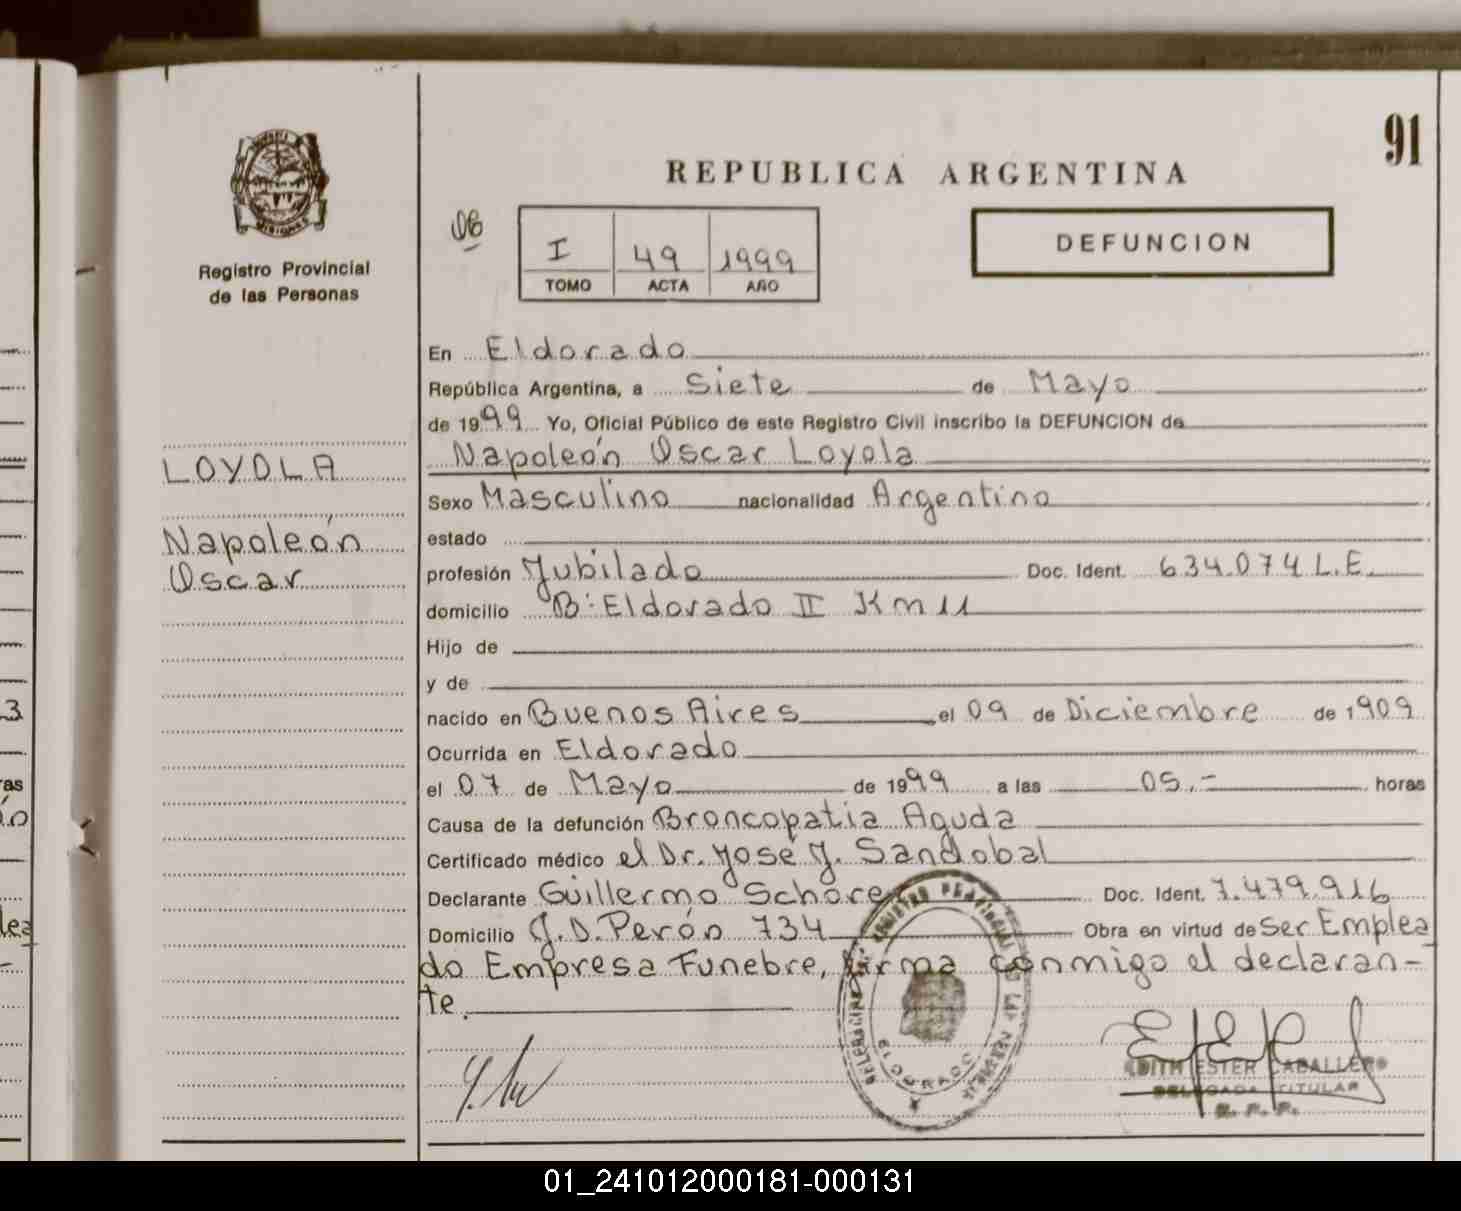 91
REPUBLICA ARGENTINA
MISIONES
Registro Provincial
de las Personas
I 49 1999
TOMO ACTA AÑO
DEFUNCION
LOYOLA
Napoleón
Oscar
En Eldorado
República Argentina, a Siete de Mayo
de 1999 Yo, Oficial Público de este Registro Civil inscribo la DEFUNCION de
Napoleón Oscar Loyola
Sexo Masculino nacionalidad Argentino
estado
profesión Jubilado Doc. Ident. 634.074 L.E.
domicilio B: Eldorado II Km 11
Hijo de
y de
nacido en Buenos Aires el 09 de Diciembre de 1909
Ocurrida en Eldorado
el 07 de Mayo de 1999 a las 05.- horas
Causa de la defunción Broncopatia Aguda
Certificado médico el Dr. José J. Sandobal
Declarante Guillermo Schore Doc. Ident. 7.479.916
Domicilio J.D. Perón 734 Obra en virtud de Ser Emplea
do Empresa Funebre, firma conmigo el declaran-
te.
REGISTRO PROVINCIAL DE LAS PERSONAS
ELDORADO
EDITH ESTER CABALLERO
DELEGADA TITULAR
R. P. P.
01_241012000181-000131